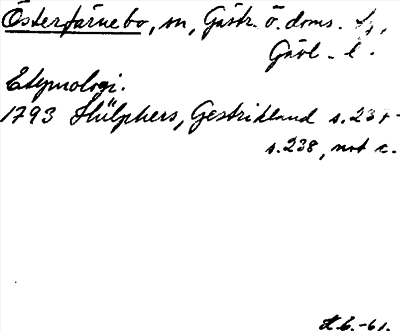 Österfärnebo, sn, Gästr. ö. doms. t.,
Gävl. l.
Etymologi.
1793 Hülphers, Gestrikland s. 237-
s. 238, not c.
H.G. -61.